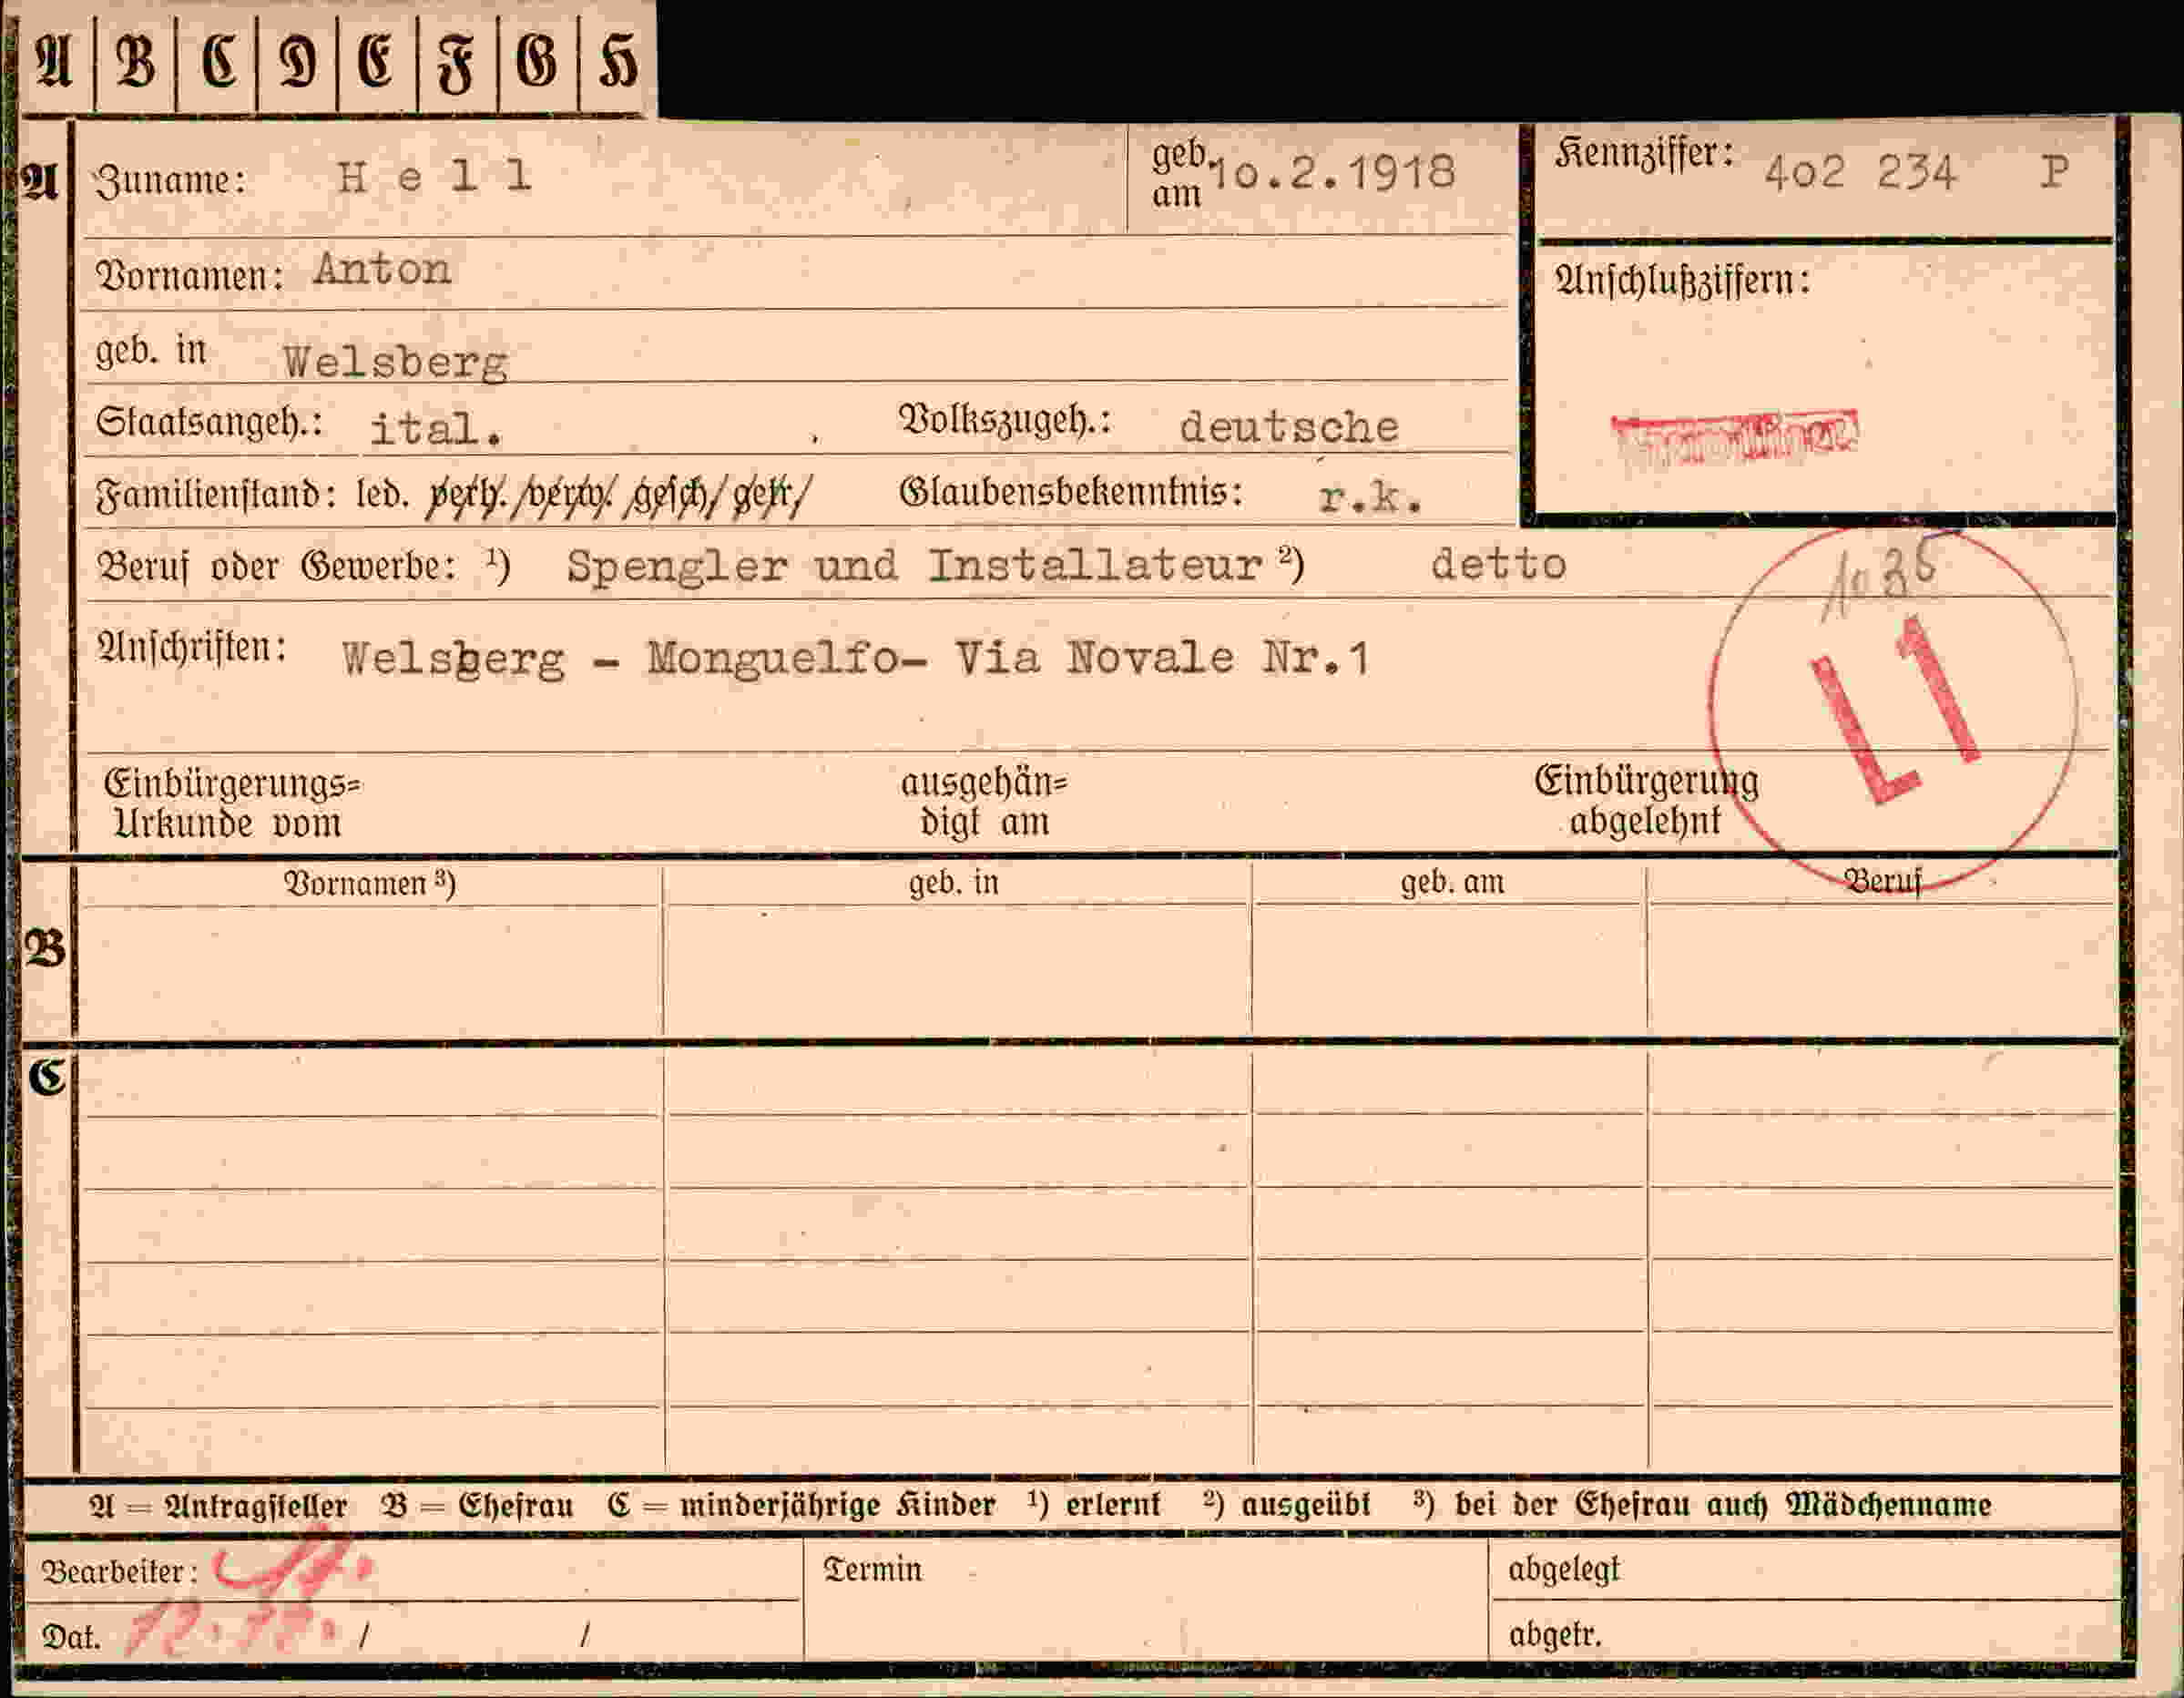 A B C D E F G H
A Zuname: Hell geb. am 10.2.1918 Kennziffer: 402 234 P
Vornamen: Anton Anschlußziffern:
geb. in Welsberg
Staatsangeh.: ital. Volkszugeh.: deutsche
Familienstand: led. verh. verw. gesch. getr. Glaubensbekenntnis: r.k.
Beruf oder Gewerbe: ¹) Spengler und Installateur ²) detto
Anschriften: Welsberg - Monguelfo- Via Novale Nr.1
L1
Einbürgerungs= ausgehän= Einbürgerung
Urkunde vom digt am abgelehnt
Vornamen ³) geb. in geb. am Beruf
B
C
A = Antragsteller B = Ehefrau C = minderjährige Kinder ¹) erlernt ²) ausgeübt ³) bei der Ehefrau auch Mädchenname
Bearbeiter: Termin abgelegt
Dat. / / abgetr.